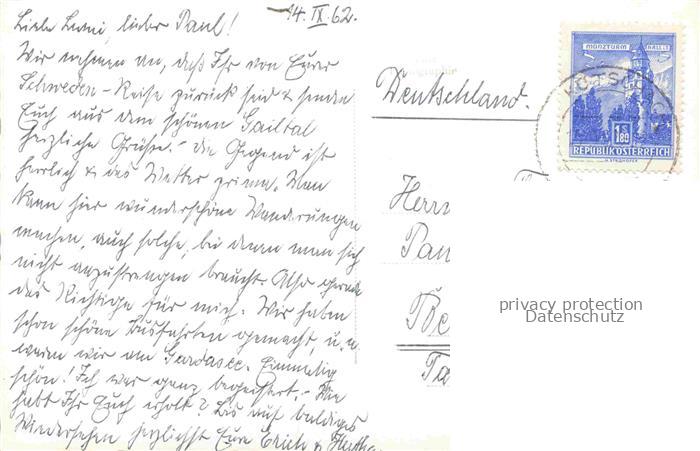 14. IX. 62.
Liebe Luni, lieber Paul!
Wir nehmen an, daß Ihr von Eurer
Schweden-Reise zurück seid & senden
Euch aus dem schönen Gailtal
herzliche Grüße. - Die Gegend ist
herrlich & das Wetter prima. Man
kann hier wunderschöne Wanderungen
machen, auch solche, bei denen man sich
nicht anzustrengen braucht. Also gerade
das Richtige für mich. Wir haben
schon schöne Busfahrten gemacht, u. a.
waren wir am Gardasee. Einmalig
schön! Ich war ganz begeistert. - Wie
habt Ihr Euch erholt? Bis auf baldiges
Wiedersehen herzlichst Eure Erich & Hertha
Deutschland.
Herrn
Pau
MÜNZTURM HALL i. T.
S 1.80
REPUBLIK ÖSTERREICH
privacy protection
Datenschutz